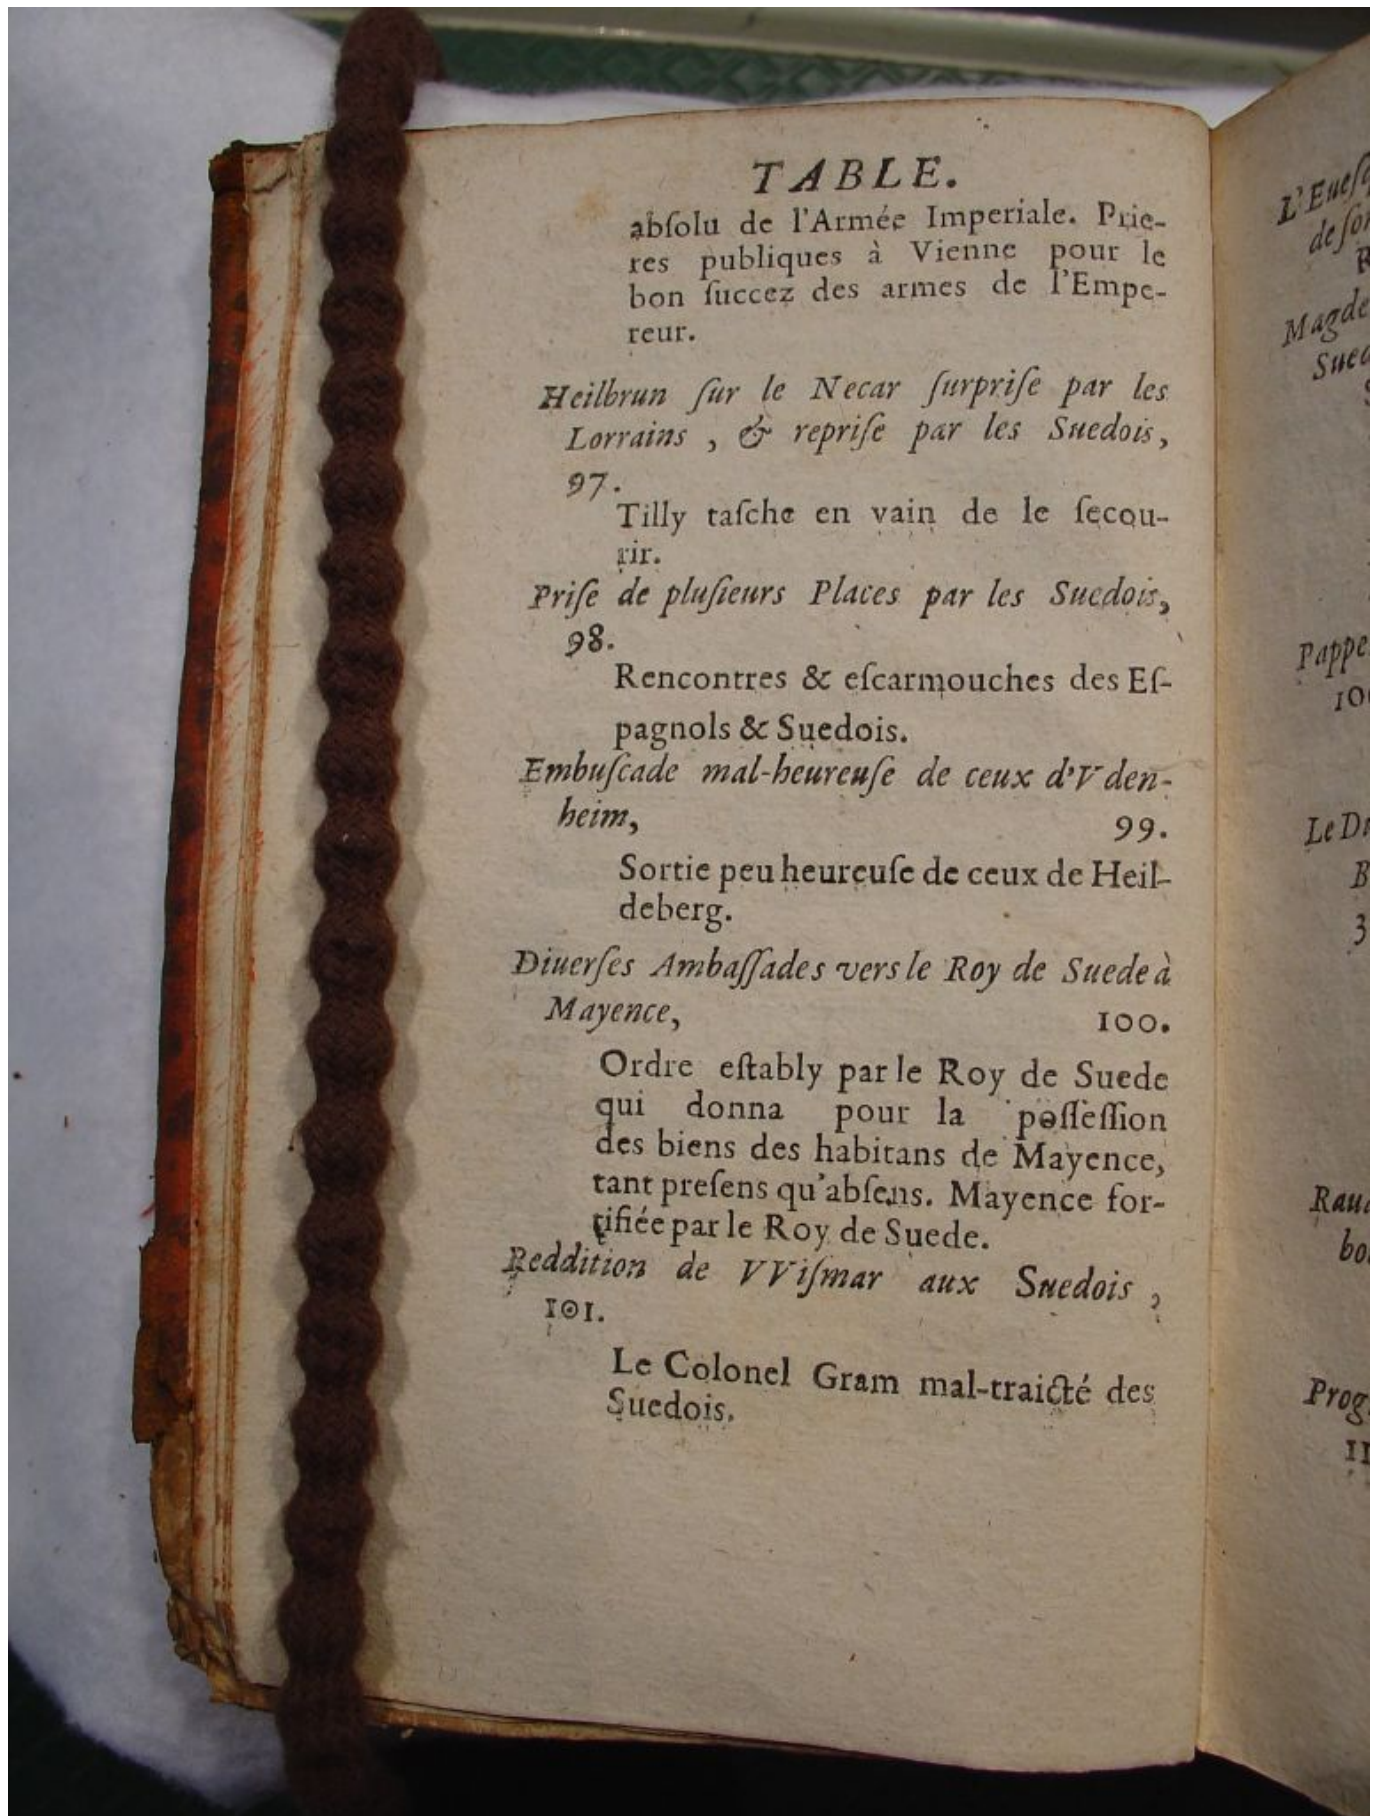 TABLE.
abſolu de l'Armée Imperiale. Prie-
res publiques à Vienne pour le
bon ſuccez des armes de l'Empe-
reur.
Heilbrun ſur le Necar ſurpriſe par les
Lorrains , & repriſe par les Suedois,
97.
Tilly taſche en vain de le ſecou-
rir.
Priſe de pluſieurs Places par les Suedois,
98.
Rencontres & eſcarmouches des Eſ-
pagnols & Suedois.
Embuſcade mal-heureuſe de ceux d'Vden-
heim, 99.
Sortie peu heureuſe de ceux de Heil-
deberg.
Diuerſes Ambaſſades vers le Roy de Suede à
Mayence, 100.
Ordre eſtably par le Roy de Suede
qui donna pour la poſſeſſion
des biens des habitans de Mayence,
tant preſens qu'abſens. Mayence for-
tifiée par le Roy de Suede.
Reddition de VViſmar aux Suedois ,
101.
Le Colonel Gram mal-traicté des
Suedois.
L'Eueſq
de ſon
Magde
Sued
Pappe
Le Du
B
3
Prog